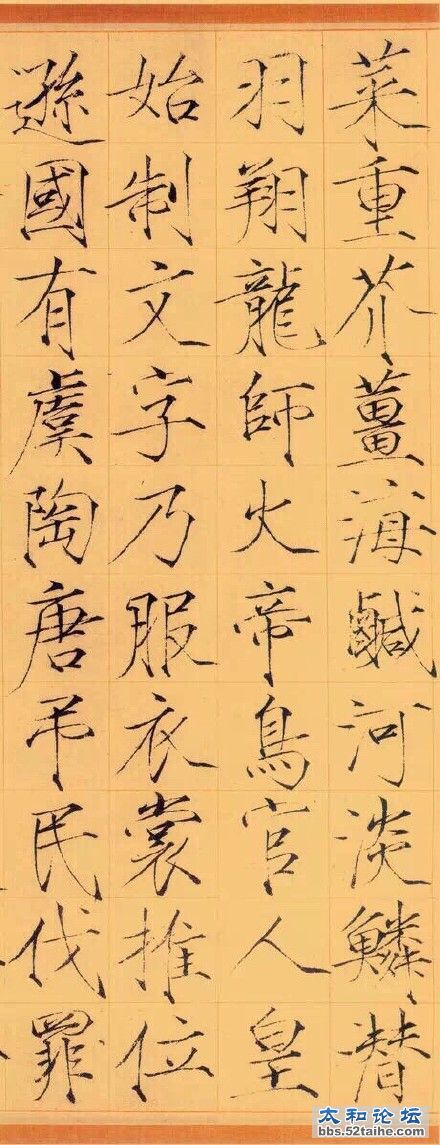 菜重芥薑海鹹河淡鱗潛
羽翔龍師火帝鳥官人皇
始制文字乃服衣裳推位
遜國有虞陶唐吊民伐罪
太和论坛
bbs.52taihe.com